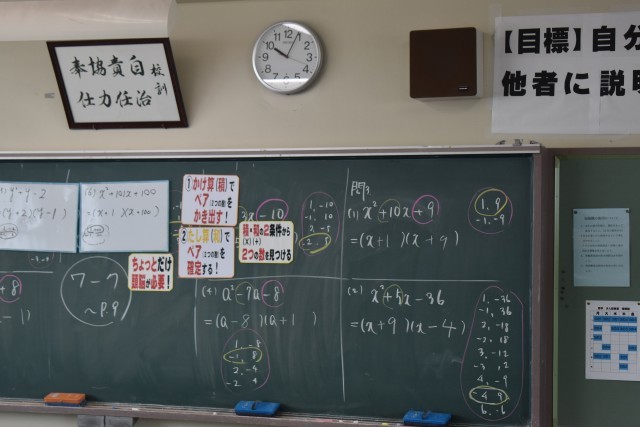 校訓
自治
責任
協力
奉仕
【目標】自分
他者に説明
y²+y-2
(y+2)(y-1)
x²+101x+100
(x+1)(x+100)
①かけ算(積)で
ペア(2つの数)を
かき出す!
②たし算(和)で
ペア(2つの数)を
確定する!
積・和の2条件から
(×)(+)
2つの数を見つける
ちょっとだけ
頭脳が必要!
7-7
~P.9
x-10
1, -10
-1, 10
2, -5
-2, 5
(4) a²-7a-8
=(a-8)(a+1)
1, -8
-1, 8
2, -4
-2, 4
問3
(1) x²+10x+9
=(x+1)(x+9)
1, 9
-1, -9
(2) x²+5x-36
=(x+9)(x-4)
1, -36
-1, 36
2, -18
-2, 18
3, -12
-3, 12
4, -9
-4, 9
6, -6
+8
-1)